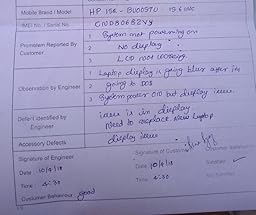 Mobile Brand / Model HP 15q - BU005TU 15.6 INC
IMEI No. / Serial No. CND80682V9
Problem Reported By Customer
1 System not powering on
2 No display
3 LCD not working
Observation by Engineer
1 Laptop display is going blur after its
2 going to DOS
3 System power ON but display issue
Defect Identified by Engineer
issue is in display
Need to replace New Laptop
Accessory Defects display issue
Signature of Engineer
Signature of Customer
Date 10/9/18
Date 10/9/18
Satisfied
Time : 4:30
Time 4:30
Not Satisfied
Customer Behaviour good